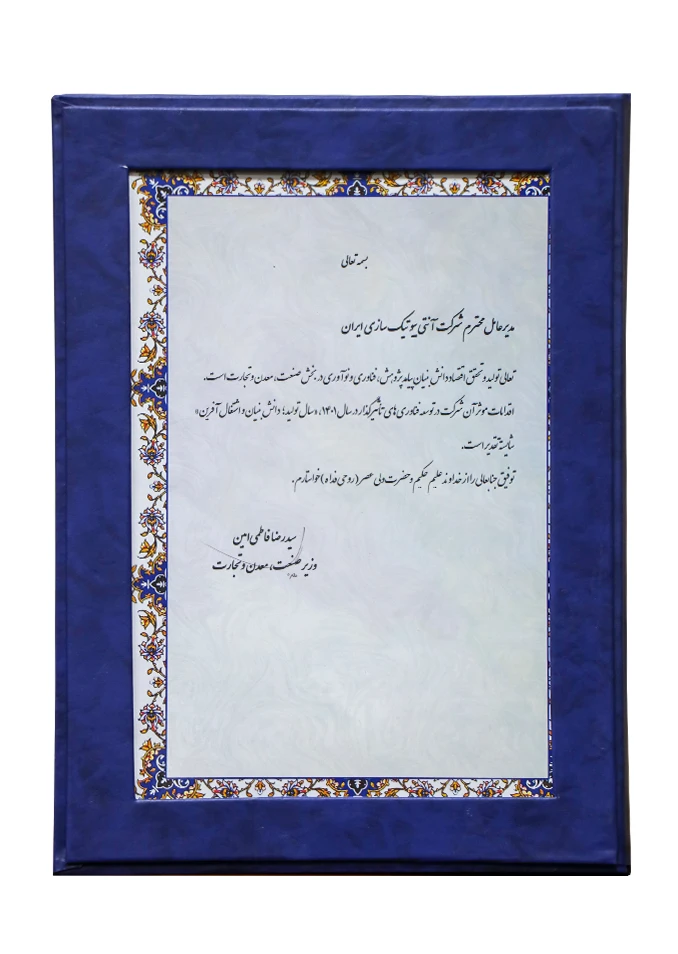 بسمه تعالی
مدیر عامل محترم شرکت آنتی بیوتیک سازی ایران
تعالی تولید و تحقق اقتصاد دانش بنیان پیامد پژوهش، فناوری و نوآوری در بخش صنعت، معدن و تجارت است.
اقدامات موثر آن شرکت در توسعه فناوری های تأثیرگذار در سال ۱۴۰۱، «سال تولید؛ دانش بنیان و اشتغال آفرین»
شایسته تقدیر است.
توفیق جنابعالی را از خداوند علیم حکیم و حضرت ولی عصر (روحی فداه) خواستارم.
سید رضا فاطمی امین
وزیر صنعت، معدن و تجارت